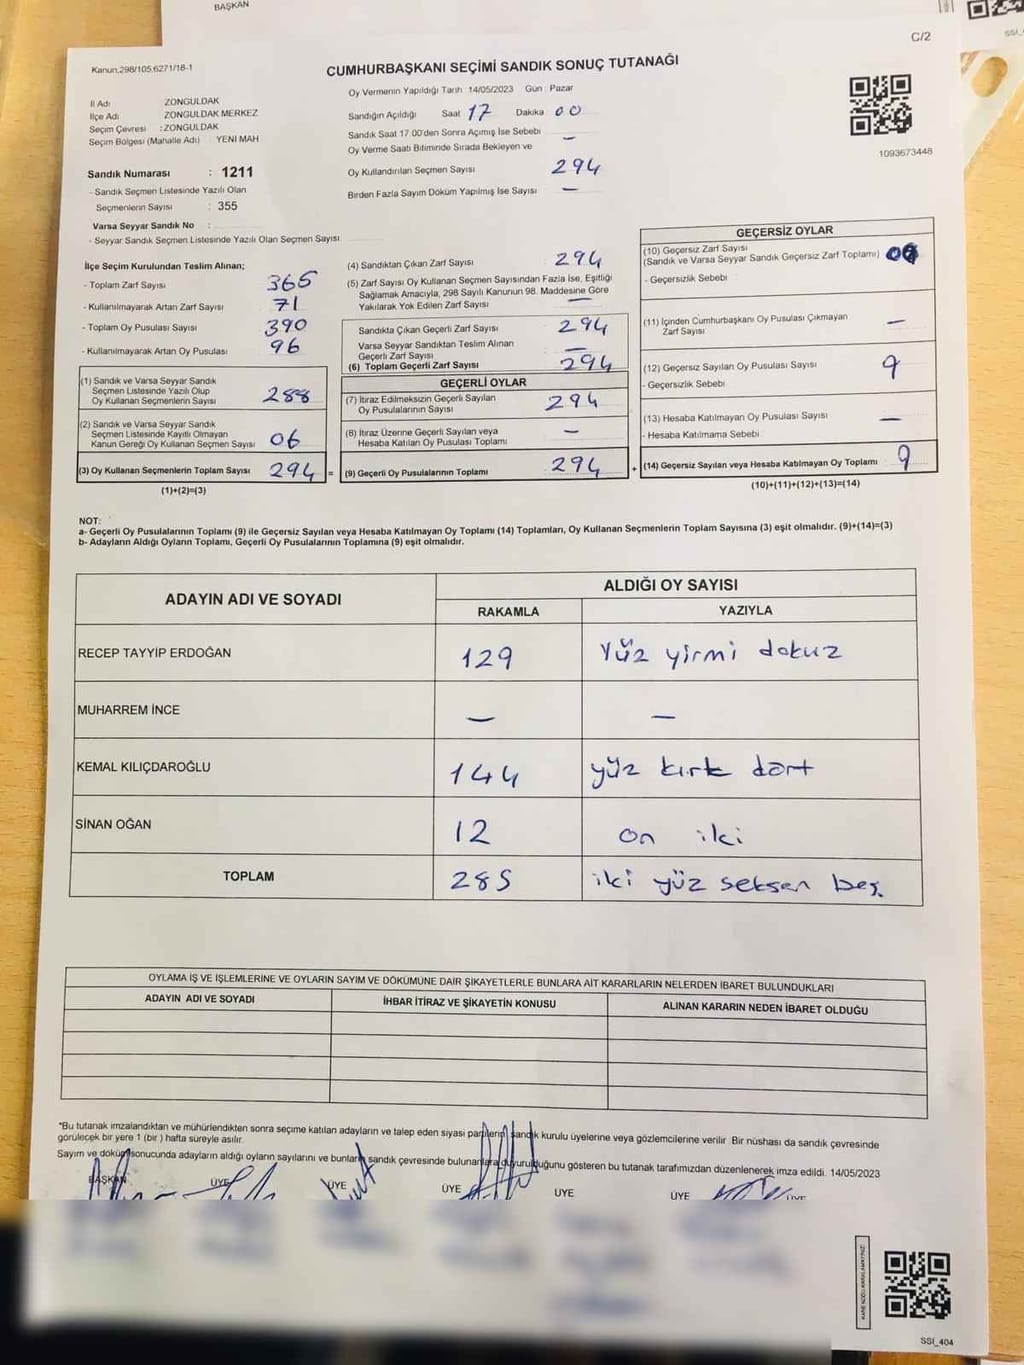 BAŞKAN
C/2
Kanun.298/105,6271/18-1
CUMHURBAŞKANI SEÇİMİ SANDIK SONUÇ TUTANAĞI
İl Adı ZONGULDAK
İlçe Adı ZONGULDAK MERKEZ
Seçim Çevresi :ZONGULDAK
Seçim Bölgesi (Mahalle Adı) YENİ MAH
Sandık Numarası : 1211
- Sandık Seçmen Listesinde Yazılı Olan
Seçmenlerin Sayısı : 355
Varsa Seyyar Sandık No :
- Seyyar Sandık Seçmen Listesinde Yazılı Olan Seçmen Sayısı
Oy Vermenin Yapıldığı Tarih 14/05/2023 Gün : Pazar
Sandığın Açıldığı Saat 17 Dakika 00
Sandık Saat 17.00'den Sonra Açımış İse Sebebi
Oy Verme Saati Bitiminde Sırada Bekleyen ve —
Oy Kullandırılan Seçmen Sayısı 294
Birden Fazla Sayım Döküm Yapılmış İse Sayısı —
1093673448
İlçe Seçim Kurulundan Teslim Alınan;
- Toplam Zarf Sayısı 365
- Kullanılmayarak Artan Zarf Sayısı 71
- Toplam Oy Pusulası Sayısı 390
- Kullanılmayarak Artan Oy Pusulası 96
(1) Sandık ve Varsa Seyyar Sandık
Seçmen Listesinde Yazılı Olup
Oy Kullanan Seçmenlerin Sayısı 288
(2) Sandık ve Varsa Seyyar Sandık
Seçmen Listesinde Kayıtlı Olmayan
Kanun Gereği Oy Kullanan Seçmen Sayısı 06
(3) Oy Kullanan Seçmenlerin Toplam Sayısı 294 =
(1)+(2)=(3)
(4) Sandıktan Çıkan Zarf Sayısı 294
(5) Zarf Sayısı Oy Kullanan Seçmen Sayısından Fazla İse, Eşitliği
Sağlamak Amacıyla, 298 Sayılı Kanunun 98. Maddesine Göre
Yakılarak Yok Edilen Zarf Sayısı —
Sandıkta Çıkan Geçerli Zarf Sayısı 294
Varsa Seyyar Sandıktan Teslim Alınan
Geçerli Zarf Sayısı —
(6) Toplam Geçerli Zarf Sayısı 294
GEÇERLİ OYLAR
(7) İtiraz Edilmeksizin Geçerli Sayılan
Oy Pusulalarının Sayısı 294
(8) İtiraz Üzerine Geçerli Sayılan veya
Hesaba Katılan Oy Pusulası Toplamı —
(9) Geçerli Oy Pusulalarının Toplamı 294 +
GEÇERSİZ OYLAR
(10) Geçersiz Zarf Sayısı
(Sandık ve Varsa Seyyar Sandık Geçersiz Zarf Toplamı)
- Geçersizlik Sebebi
(11) İçinden Cumhurbaşkanı Oy Pusulası Çıkmayan
Zarf Sayısı —
(12) Geçersiz Sayılan Oy Pusulası Sayısı 9
- Geçersizlik Sebebi
(13) Hesaba Katılmayan Oy Pusulası Sayısı —
- Hesaba Katılmama Sebebi
(14) Geçersiz Sayılan veya Hesaba Katılmayan Oy Toplamı 9
(10)+(11)+(12)+(13)=(14)
NOT:
a- Geçerli Oy Pusulalarının Toplamı (9) ile Geçersiz Sayılan veya Hesaba Katılmayan Oy Toplamı (14) Toplamları, Oy Kullanan Seçmenlerin Toplam Sayısına (3) eşit olmalıdır. (9)+(14)=(3)
b- Adayların Aldığı Oyların Toplamı, Geçerli Oy Pusulalarının Toplamına (9) eşit olmalıdır.
ADAYIN ADI VE SOYADI ALDIĞI OY SAYISI
RAKAMLA YAZIYLA
RECEP TAYYİP ERDOĞAN 129 Yüz yirmi dokuz
MUHARREM İNCE — —
KEMAL KILIÇDAROĞLU 144 yüz kırk dört
SİNAN OĞAN 12 on iki
TOPLAM 285 iki yüz seksen beş
OYLAMA İŞ VE İŞLEMLERİNE VE OYLARIN SAYIM VE DÖKÜMÜNE DAİR ŞİKAYETLERLE BUNLARA AİT KARARLARIN NELERDEN İBARET BULUNDUKLARI
ADAYIN ADI VE SOYADI İHBAR İTİRAZ VE ŞİKAYETİN KONUSU ALINAN KARARIN NEDEN İBARET OLDUĞU
*Bu tutanak imzalandıktan ve mühürlendikten sonra seçime katılan adayların ve talep eden siyasi partilerin sandık kurulu üyelerine veya gözlemcilerine verilir. Bir nüshası da sandık çevresinde
görülecek bir yere 1 (bir ) hafta süreyle asılır.
Sayım ve döküm sonucunda adayların aldığı oyların sayılarını ve bunların sandık çevresinde bulunanlara duyurulduğunu gösteren bu tutanak tarafımızdan düzenlenerek imza edildi. 14/05/2023
BAŞKAN ÜYE ÜYE ÜYE ÜYE ÜYE ÜYE
SSI_404